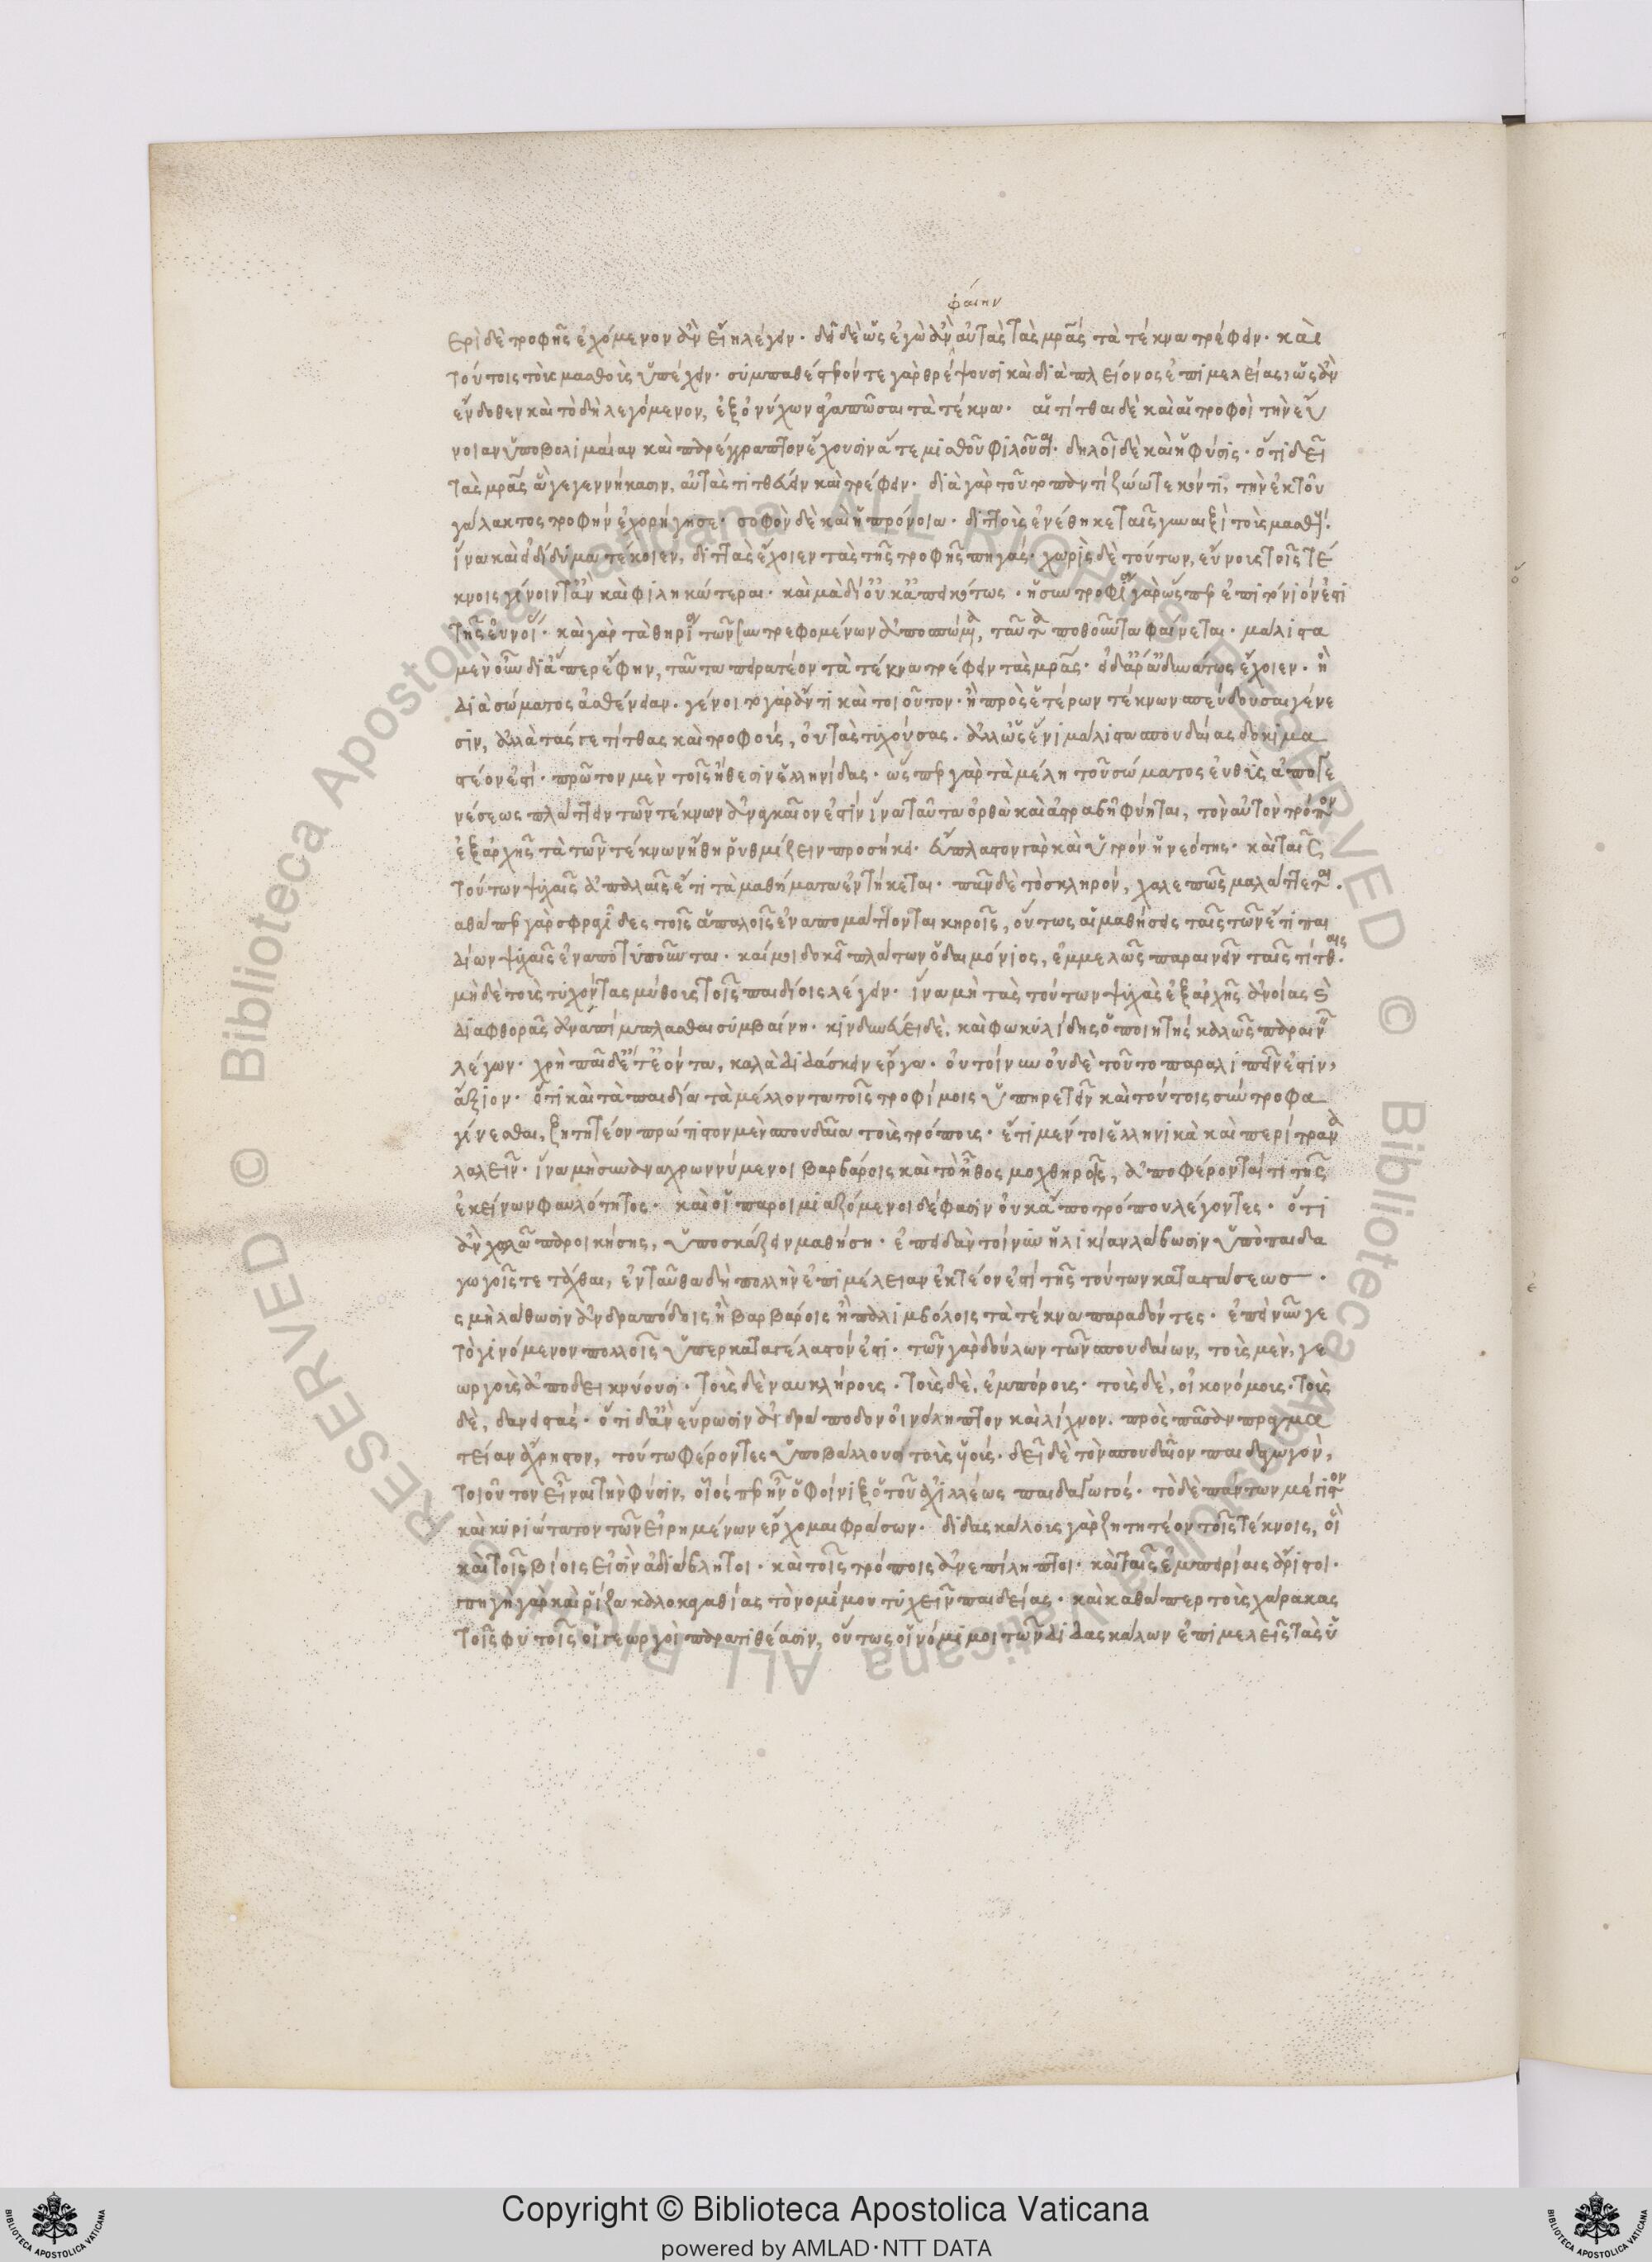 φαίην
ερὶ δὲ τροφῆς ἐχόμενον ἂν εἴη λέγειν· δεῖ δὲ ὡς ἐγὼ ἂν αὐτὰς τὰς μρᾶς τὰ τέκνα τρέφειν· καὶ
τούτοις τοὺς μασθοὺς ὑπέχειν· συμπαθέστερόν τε γὰρ θρέψουσι καὶ διὰ πλείονος ἐπιμελείας, ὡς ἂν
ἔνδοθεν καὶ τὸ δὴ λεγόμενον, ἐξ ὀνύχων ἀγαπῶσαι τὰ τέκνα· αἱ τίτθαι δὲ καὶ αἱ τροφοὶ τὴν εὔ
νοιαν ὑποβολιμαίαν καὶ παρέγγραπτον ἔχουσιν ἅτε μισθοῦ φιλοῦσαι· δηλοῖ δὲ καὶ ἡ φύσις· ὅτι δεῖ
τὰς μρᾶς ἃ γεγεννήκασιν, αὐτὰς τιτθεύειν καὶ τρέφειν· διὰ γὰρ τοῦτο παντὶ ζώω τεκόντι, τὴν ἐκ τοῦ
γάλακτος τροφὴν ἐχορήγησε· σοφὸν δὲ καὶ ἡ πρόνοια· διττοὺς ἐνέθηκε ταῖς γυναιξὶ τοὺς μασθούς·
ἵνα καὶ εἰ δίδυμα τέκοιεν, διττὰς ἔχοιεν τὰς τῆς τροφῆς πηγάς· χωρὶς δὲ τούτων, εὔνοις τοῖς τέ
κνοις γίνοιντ᾽ ἂν καὶ φιλικώτεραι· καὶ μὰ δί᾽ οὐκ ἀπεικότως· ἡ συντροφία γὰρ ὥσπερ ἐπιτόνιόν ἐστι
τῆς εὐνοίας· καὶ γὰρ τὰ θηρία τῶν συντρεφομένων ἀποσπώμενα, ταῦτα ποθοῦντα φαίνεται· μάλιστα
μὲν οὖν διάπερ ἔφην, ταῦτα πειρατέον τὰ τέκνα τρέφειν τὰς μρᾶς· εἰ δ᾽ ἄρ᾽ ἀδυνάτως ἔχοιεν· ἢ
διὰ σώματος ἀσθένειαν· γένοιτο γὰρ ἄν τι καὶ τοιοῦτον· ἢ πρὸς ἑτέρων τέκνων σπεύδουσαι γένε
σιν, ἀλλὰ τάς γε τίτθας καὶ τροφούς, οὐ τὰς τυχούσας· ἀλλ᾽ ὡς ἔνι μάλιστα σπουδαίας δοκιμα
στέον ἐστί· πρῶτον μὲν τοῖς ἤθεσιν ἑλληνίδας· ὥσπερ γὰρ τὰ μέλη τοῦ σώματος εὐθὺς ἀπὸ γε
νέσεως πλάττειν τῶν τέκνων ἀναγκαῖον ἐστὶν ἵνα ταῦτα ὀρθὰ καὶ ἀστραβῆ φύηται, τὸν αὐτὸν τρόπον
ἐξ ἀρχῆς τὰ τῶν τέκνων ἤθη ῥυθμίζειν προσήκει· εὔπλαστον γὰρ καὶ ὑγρόν ἡ νεότης· καὶ ταῖς
τούτων ψυχαῖς ἁπαλαῖς ἔτι τὰ μαθήματα ἐντήκεται· πᾶν δὲ τὸ σκληρόν, χαλεπῶς μαλάττεται.
καθάπερ γὰρ σφραγῖδες τοῖς ἁπαλοῖς ἐναπομάττονται κηροῖς, οὕτως αἱ μαθήσεις ταῖς τῶν ἔτι παι
δίων ψυχαῖς ἐναποτυποῦνται· καί μοι δοκεῖ πλάτων ὁ δαιμόνιος, ἐμμελῶς παραινεῖν ταῖς τίτθαις·
μὴδὲ τοὺς τυχόντας μύθους τοῖς παιδίοις λέγειν· ἵνα μὴ τὰς τούτων ψυχὰς ἐξ ἀρχῆς ἀνοίας καὶ
διαφθορᾶς ἀναπίμπλασθαι συμβαίνη· κινδυνεύει δὲ, καὶ φωκυλίδης ὁ ποιητής καλῶς παραινεῖν
λέγων· χρὴ παῖδ᾽ ἔτ᾽ ἐόντα, καλὰ διδάσκειν ἔργα· οὐ τοίνυν οὐδὲ τοῦτο παραλιπεῖν ἐστὶν,
ἄξιον· ὅτι καὶ τὰ παιδία τὰ μέλλοντα τοῖς τροφίμοις ὑπηρετεῖν καὶ τούτοις σύντροφα
γίνεσθαι, ζητητέον πρώτιστον μὲν σπουδαῖα τοὺς τρόπους· ἔτι μέντοι ἑλληνικὰ καὶ περίτρανα
λαλεῖν· ἵνα μὴ συναναχρωννύμενοι βαρβάροις καὶ τὸ ἦθος μοχθηροῖς, ἀποφέρονταί τι τῆς
ἐκείνων φαυλότητος· καὶ οἱ παροιμιαζόμενοι δέ φασὶν οὐκ ἀπὸ τρόπου λέγοντες· ὅτι
ἂν χωλῶ παροικήσης, ὑποσκάζειν μαθήση· ἐπειδὰν τοίνυν ἡλικίαν λάβωσιν ὑπὸ παιδα
γωγοῖς τετάχθαι, ἐνταῦθα δὴ πολλὴν ἐπιμέλειαν ἑκτέον ἐστί τῆς τούτων καταστάσεως·
ς μὴ λάθωσιν ἀνδραπόδοις ἢ βαρβάροις ἢ παλιμβόλοις τὰ τέκνα παραδόντες· ἐπεὶ νῦν γε
τὸ γινόμενον πολλοῖς ὑπερκαταγέλαστόν ἐστι· τῶν γὰρ δούλων τῶν σπουδαίων, τοὺς μὲν, γε
ωργοὺς ἀποδεικνύουσι· τοὺς δὲ ναυκλήρους· τοὺς δὲ, ἐμπόρους· τοὺς δὲ, οἰκονόμους· τοὺς
δὲ, δανειστάς· ὅτι δ᾽ ἂν εὕρωσιν ἀνδράποδον οἰνόληπτον καὶ λίχνον. πρὸς πᾶσαν πραγμα
τείαν ἄχρηστον, τούτω φέροντες ὑποβάλλουσι τοὺς υἱούς· δεῖ δὲ τὸν σπουδαῖον παιδαγωγὸν,
τοιοῦτον εἶναι τὴν φύσιν, οἷόσπερ ἦν ὁ φοίνιξ ὁ τοῦ ἀχιλλέως παιδαγωγός· τὸ δὲ πάντων μέγιστον
καὶ κυριώτατον τῶν εἰρημένων ἔρχομαι φράσων· διδασκάλους γὰρ ζητητέον τοῖς τέκνοις, οἳ
καὶ τοῖς βίοις εἰσὶν ἀδιάβλητοι· καὶ τοῖς τρόποις ἀνεπίληπτοι· καὶ ταῖς ἐμπειρίαις ἄριστοι·
πηγὴ γὰρ καὶ ῥίζα καλοκαγαθίας τὸ νομίμου τυχεῖν παιδείας· καὶ καθάπερ τοὺς χάρακας
τοῖς φυτοῖς οἱ γεωργοὶ παρατιθέασιν, οὕτως οἱ νόμιμοι τῶν διδασκάλων ἐπιμελεῖς τὰς ὑ
Copyright © Biblioteca Apostolica Vaticana
powered by AMLAD·NTT DATA